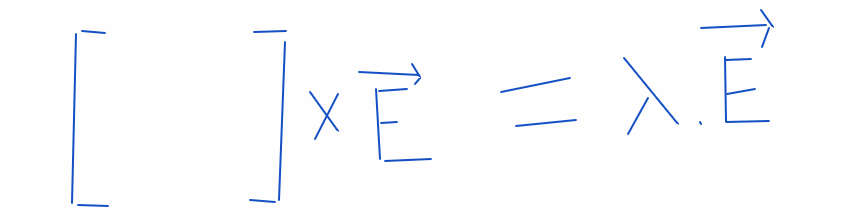 [ ] × E⃗ = λ . E⃗